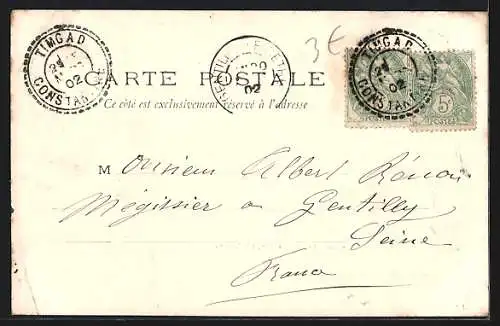 TIMGAD
02
CONSTANTINE
GENTILLY
02
3€
TIMGAD
02
CONSTANTINE
5c
POSTES
CARTE POSTALE
Ce côté est exclusivement réservé à l'adresse
Monsieur Albert
Mégissier a Gentilly
Seine
France